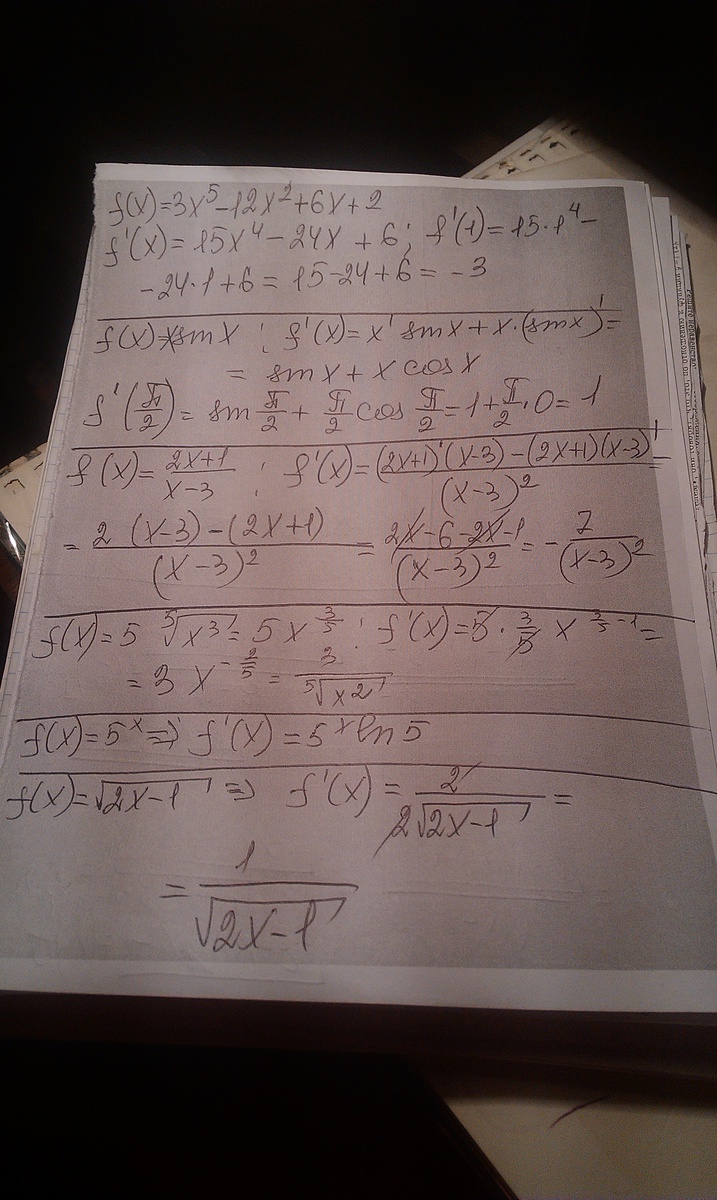 f(x)=3x⁵-12x²+6x+2
f'(x)=15x⁴-24x+6; f'(1)=15·1⁴-
-24·1+6=15-24+6=-3
f(x)=xsinx; f'(x)=x'sinx+x·(sinx)'=
=sinx+xcosx
f'(π/2)=sin π/2+π/2 cos π/2=1+π/2·0=1
f(x)=(2x+1)/(x-3); f'(x)=((2x+1)'(x-3)-(2x+1)(x-3)')/(x-3)²=
=(2(x-3)-(2x+1))/(x-3)²=(2x-6-2x-1)/(x-3)²=-7/(x-3)²
f(x)=5 ⁵√x³=5x^(3/5); f'(x)=5·3/5 x^(3/5-1)=
=3x^(-2/5)=3/⁵√x²
f(x)=5ˣ⇒f'(x)=5ˣln5
f(x)=√(2x-1)⇒f'(x)=2/(2√(2x-1))=
=1/√(2x-1)